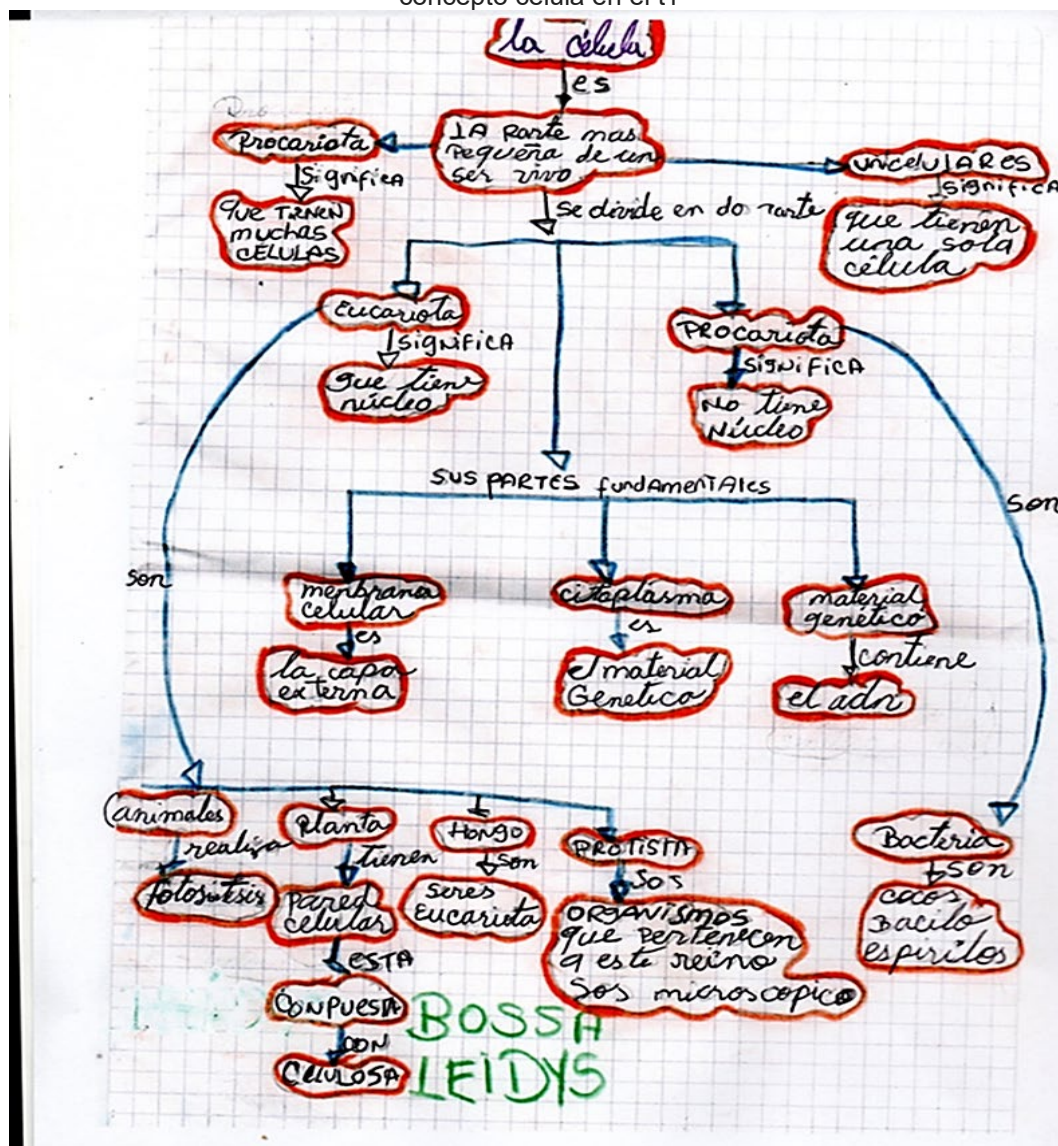 concepto célula en el t1
la célula
es
LA Parte mas
Pequeña de un
ser vivo
Procariota
Significa
que TIENEN
muchas
CELULAS
unicelulARES
significA
que tienen
una sola
célula
Se divide en do parte
Eucariota
significA
que tiene
núcleo
PROCariota
significA
No tiene
Núcleo
SUS PARTES fundAmenTAles
son
son
menbrana
celular
es
la capa
externa
citoplásma
es
el material
Genetico
material
genético
contiene
el adn
animales
realiza
fotosítesis
Planta
tienen
pared
celular
ESTA
CONPUESTA
CON
CELULOSA
Hongo
son
seres
Eucariota
PROTISTA
sos
ORGANismos
que pertenecen
a este reino
sos microscopico
Bacteria
son
cocos
Bacilo
espirilos
BOSSA
LEIDYS